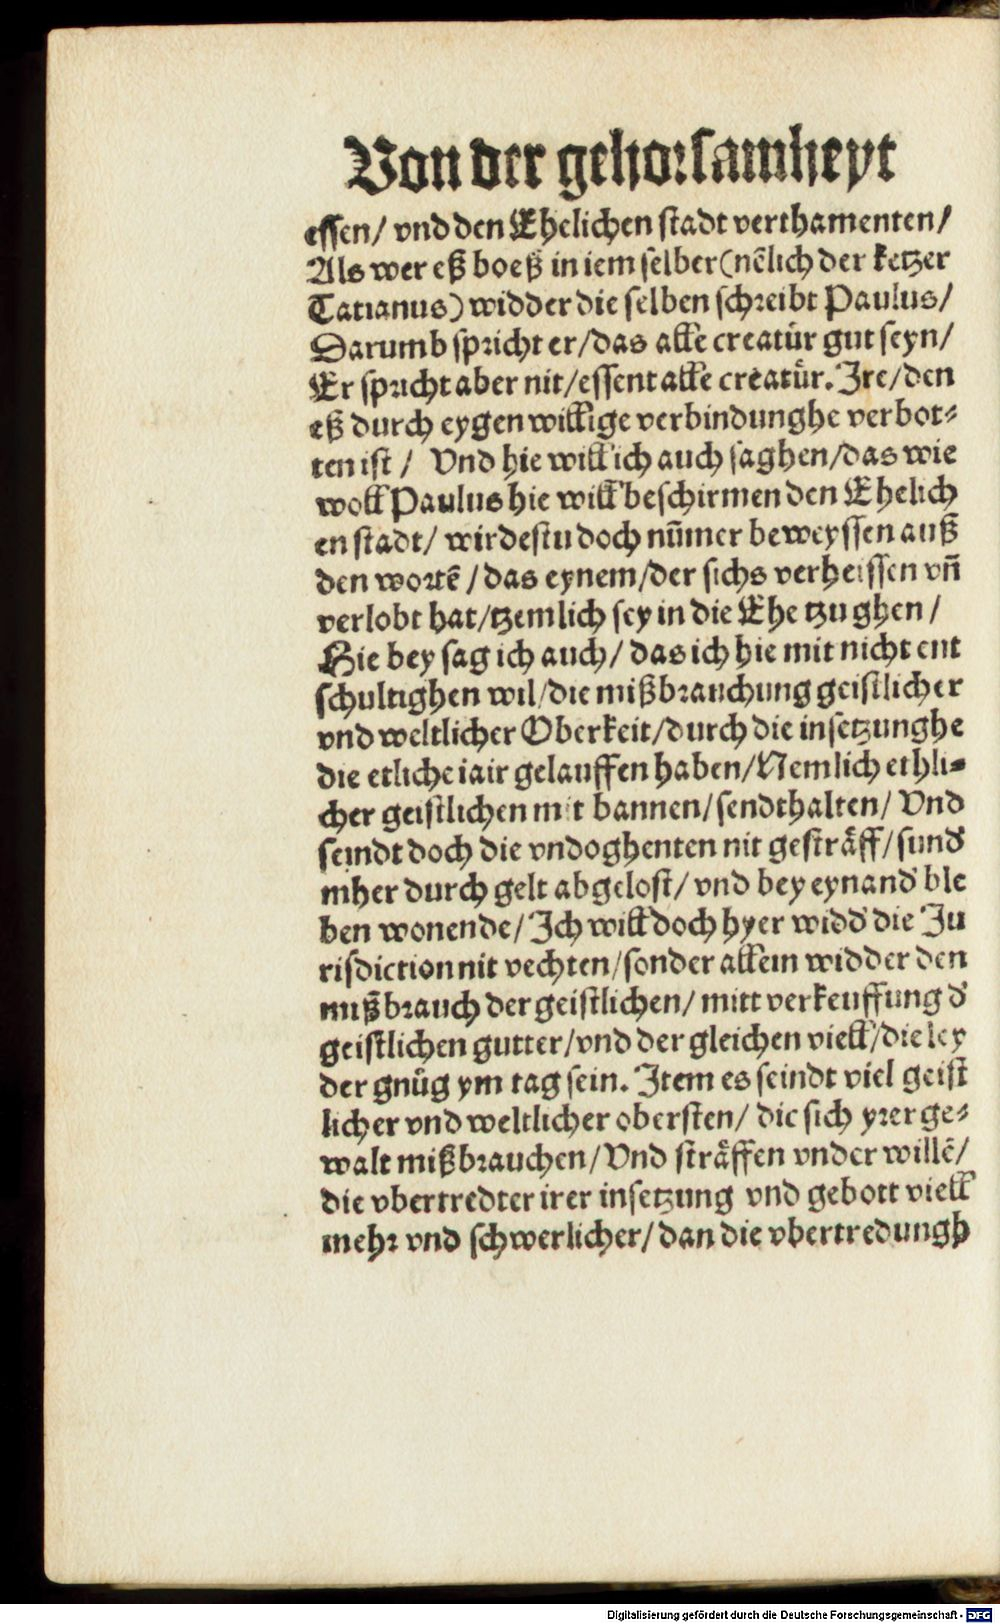 Von der gehorsamheyt
essen/ vnd den Ehelichen stadt verthamenten/
Als wer eß boeß in iem selber (nēlich der ketzer
Tatianus) widder die selben schreibt Paulus/
Darumb spricht er/das alle creatür gut seyn/
Er spricht aber nit/essent alle creatür. Ire/den
eß durch eygen willige verbindunghe verbot⸗
ten ist / Vnd hie will ich auch saghen/das wie
woll Paulus hie will beschirmen den Ehelich
en stadt/ wirdestu doch nūmer beweyssen auß
den wortē /das eynem/der sichs verheissen vñ
verlobt hat/tzemlich sey in die Ehe tzu ghen /
Hie bey sag ich auch/ das ich hie mit nicht ent
schultighen wil/die mißbrauchung geistlicher
vnd weltlicher Oberkeit/durch die insetzunghe
die etliche iair gelauffen haben/Nemlich ethli⸗
cher geistlichen mit bannen/sendthalten/ Vnd
seindt doch die vndoghenten nit gesträff/sund̕
mher durch gelt abgelost/ vnd bey eynand̕ ble
ben wonende/ Ich will doch hyer widd̕ die Ju
risdiction nit vechten/sonder allein widder den
mißbrauch der geistlichen/ mitt verkeuffung d̕
geistlichen gutter/vnd der gleichen viell/die ley
der gnüg ym tag sein. Item es seindt viel geist
licher vnd weltlicher obersten/ die sich yrer ge⸗
walt mißbrauchen/Vnd sträffen vnder willē/
die vbertredter irer insetzung vnd gebott viell
mehr vnd schwerlicher/dan die vbertredungh
Digitalisierung gefördert durch die Deutsche Forschungsgemeinschaft - DFG